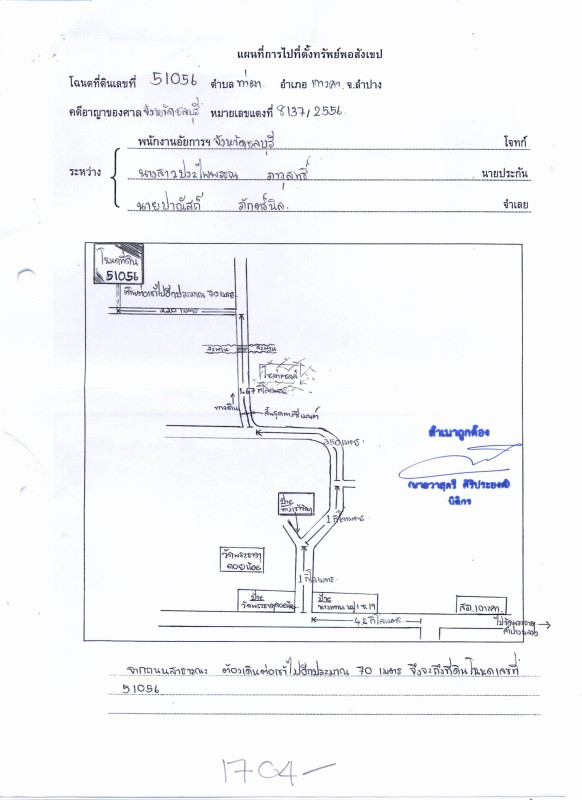 แผนที่การไปที่ตั้งทรัพย์พอสังเขป
โฉนดที่ดินเลขที่ 51056 ตำบล ท่าผา อำเภอ เกาะคา จ.ลำปาง
คดีอาญาของศาล จังหวัดชลบุรี หมายเลขแดงที่ 8137/2556
พนักงานอัยการฯ จังหวัดชลบุรี โจทก์
ระหว่าง นางสาวประไพพรรณ นายประกัน
นายปาณัสถ์ จำเลย
โฉนดที่ดิน
51056
เดินต่อเข้าไปอีกประมาณ 70 เมตร
220 เมตร
สะพาน สะพาน
1.67 กิโลเมตร
ทางดิน
สิ้นสุดทางซีเมนต์
350 เมตร
สำเนาถูกต้อง
(นายวาสุตรี ศิริประยงค์)
นิติกร
ป้าย
1 กิโลเมตร
วัดพระธาตุ
ดอยน้อย
1 กิโลเมตร
ป้าย
วัดพระธาตุดอยน้อย
ป้าย
สภ.เกาะคา
4.2 กิโลเมตร
ไปวัดพระธาตุ
ลำปางหลวง
จากถนนสาธารณะ ต้องเดินต่อเข้าไปอีกประมาณ 70 เมตร จึงจะถึงที่ดินโฉนดเลขที่
51056
1704